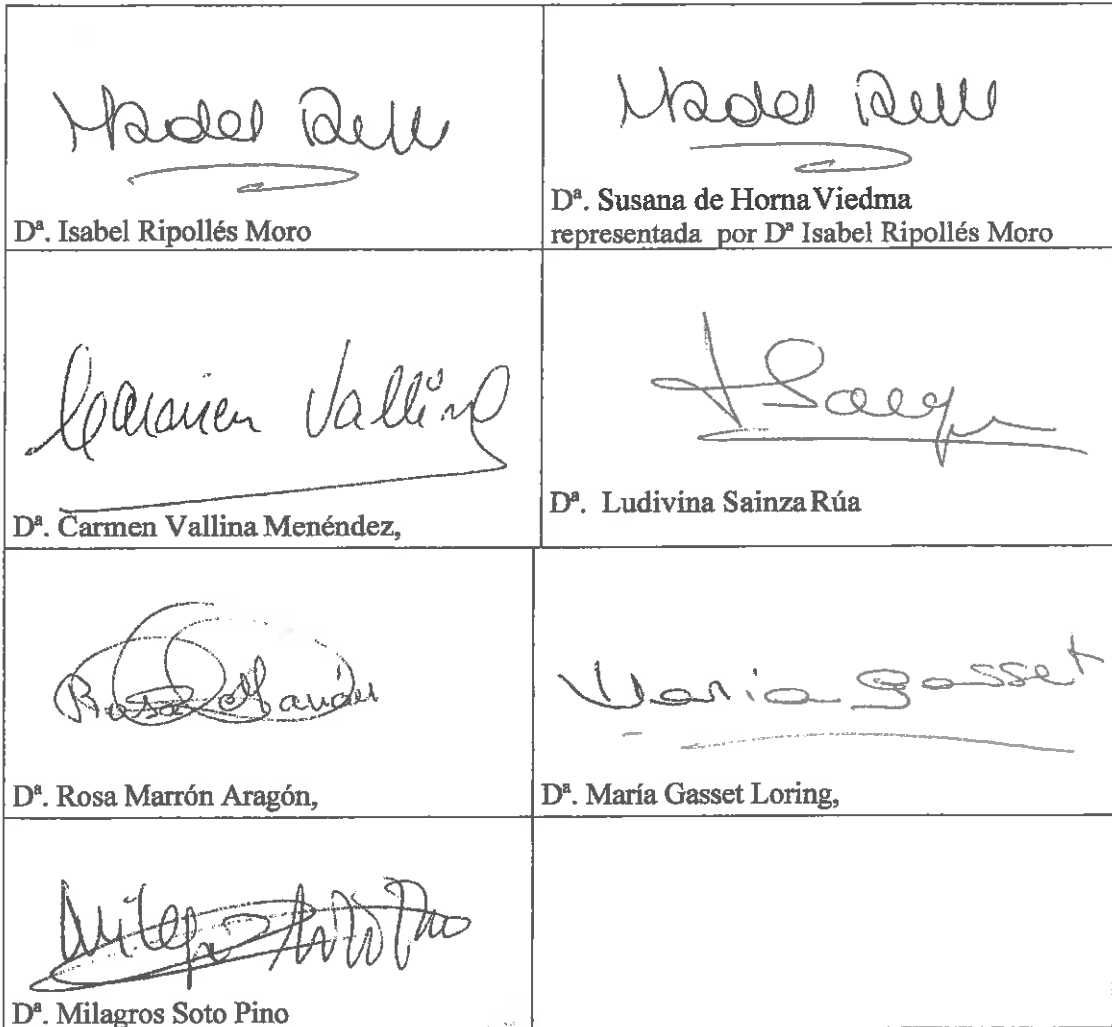 Dª. Isabel Ripollés Moro
Dª. Susana de Horna Viedma
representada por Dª Isabel Ripollés Moro
Carmen Vallina
Dª. Carmen Vallina Menéndez,
Dª. Ludivina Sainza Rúa
Rosa Marrón
Dª. Rosa Marrón Aragón,
Maria Gasset
Dª. María Gasset Loring,
Dª. Milagros Soto Pino